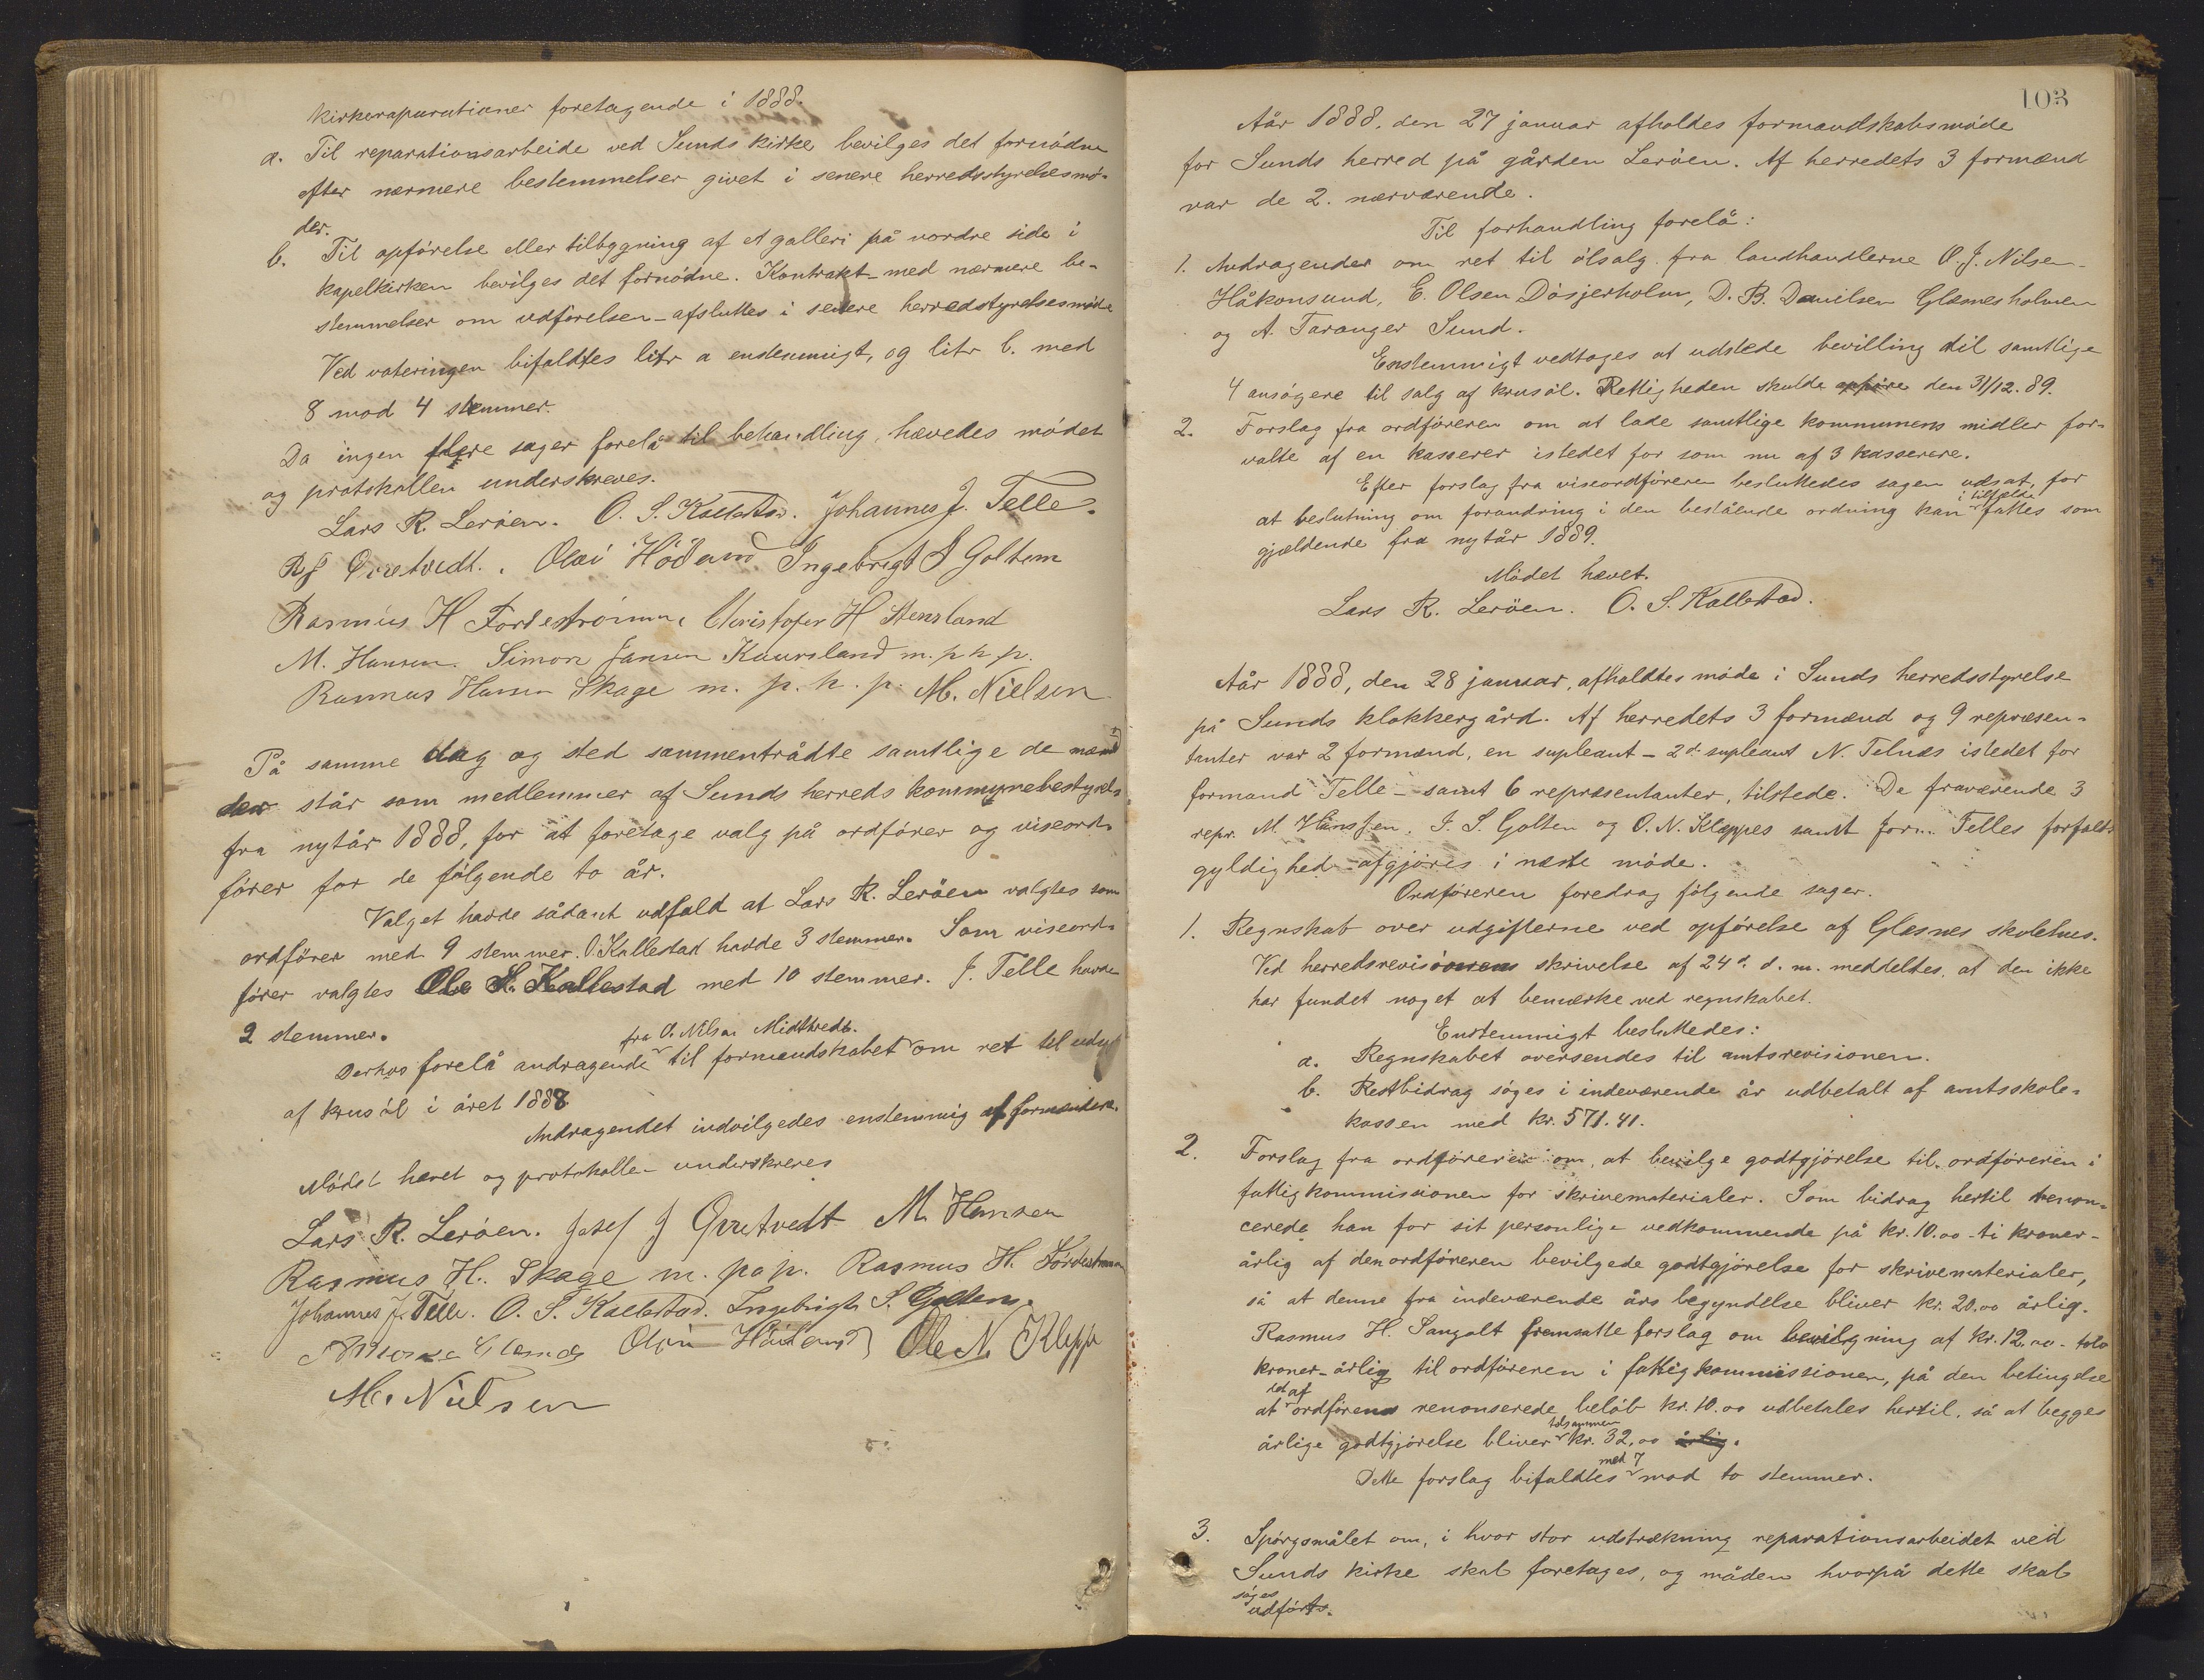 kirkeraparationer foretagende i 1888.
a. Til reparationsarbeide ved Sunds kirke bevilges det fornødne
efter nærmere bestemmelser givet i senere herredsstyrelsesmö-
der.
b. Til opförelse eller tilbygning af et galleri på nordre side i
kapelkirken bevilges det fornödne. Kontrakt med nærmere be-
stemmelser om udförelsen afsluttes i senere herredsstyrelsesmöde
Ved voteringen bifaldtes litr a enstemmigt, og litr b. med
8 mod 4 stemmer.
Da ingen flere sager forelå til behandling, hævedes mödet
og protokollen underskreves.
Lars R. Leröen. O. S. Kallestad. Johannes J. Telle.
Olai Ingebrigt S Goltem
Rasmus H Christofer H Stensland
M. Hansen. Simon Jansen Kaursland m. p h p.
Rasmus Hansen Skage m. p. h. p. M. Nielsen
På samme dag og sted sammentrådte samtlige de mænd
der står som medlemmer af Sunds herreds kommunebestyrelse
fra nytår 1888, for at foretage valg på ordförer og viseord-
förer for de fölgende to år.
Valget havde sådant udfald at Lars R. Leröen valgtes som
ordförer med 9 stemmer. O. Kallestad havde 3 stemmer. Som viseord-
förer valgtes Ole S. Kallestad med 10 stemmer. J. Telle havde
2 stemmer.
fra O. Nilsen Midttvedt.
Derhos forelå andragende til formandskabet om ret til
af krusöl i året 1888.
Andragendet indvilgedes enstemmig af formændene.
Mödet hævet og protokollen underskreves
Lars R. Leröen. Josef J Qvretvedt M. Hansen
Rasmus H. Skage m. p. p. Rasmus H.
Johannes J. Telle. O. S. Kallestad. Ingebrigt S. Golten.
Ole N. Kleppe
M. Nielsen
103
Aår 1888, den 27 januar afholdes formandskabsmöde
for Sunds herred på gården Leröen. Af herredets 3 formænd
var de 2. nærværende.
Til forhandling forelå:
1. Andragender om ret til ölsalg fra landhandlerne O. J. Nilsen
Håkonsund, E. Olsen Dösjerholm, D. B. Danilsen Glæsnesholmen
og A. Taranger Sund.
Enstemmigt vedtoges at udstede bevilling til samtlige
4 ansögere til salg af krusöl. Rettigheden skulde ophöre den 31/12. 89.
2. Forslag fra ordföreren om at lade samtlige kommunens midler for-
valte af en kasserer istedet for som nu af 3 kasserere.
Efter forslag fra viseordföreren besluttedes sagen udsat, for
i tilfælde
at beslutning om forandring i den bestående ordning kan fattes som
gjældende fra nytår 1889.
Mödet hævet.
Lars R. Leröen. O. S. Kallestad.
Aår 1888, den 28 januar, afholdtes möde i Sunds herredsstyrelse
på Sunds klokkergård. Af herredets 3 formænd og 9 repræsen-
tanter var 2 formænd, en supleant – 2d. supleant N. Telnæs istedet for
formand Telle – samt 6 repræsentanter, tilstede. De fraværende 3
repr. M. Hanssen, I. S. Golten og O. N. Kleppes samt form. Telles forfalds
gyldighed afgjöres i næste möde.
Ordföreren foredrog fölgende sager.
1. Regnskab over udgifterne ved opförelse af Glæsnes skolehus.
Ved herredsrevisionens skrivelse af 24d. d. m. meddeltes, at den ikke
har fundet noget at bemærke ved regnskabet.
Enstemmigt besluttedes:
a. Regnskabet oversendes til amtsrevisionen.
b. Restbidrag söges i indeværende år udbetalt af amtsskole-
kassen med kr. 571.41.
2. Forslag fra ordföreren om, at bevilge godtgjörelse til ordföreren i
fattigkommissionen for skrivematerialer. Som bidrag hertil renon-
cerede han for sit personlige vedkommende på kr. 10.00 – ti kroner –
årlig af den ordföreren bevilgede godtgjörelse for skrivematerialer,
så at denne fra indeværende års begyndelse bliver kr. 20.00 årlig.
Rasmus H. Sangolt fremsatte forslag om bevilgning af kr. 12.00 – tolv
kroner – årlig til ordföreren i fattigkommissionen, på den betingelse
det af
at ordföreren renonserede belöb kr. 10.00 udbetales hertil, så at begges
tilsammen
årlige godtgjörelse bliver kr. 32,00 årlig.
med 7
Dette forslag bifaldtes mod to stemmer.
3. Spörgsmålet om, i hvor stor udstrækning reparationsarbeidet ved
Sunds kirke skal foretages, og måden hvorpå dette skal
söges
udförts.